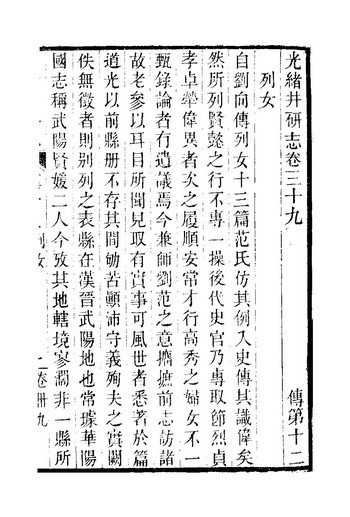 光緒井研志卷三十九　傳第十二
列女
自劉向傳列女十三篇范氏仿其例入史傳其識偉矣
然所列賢懿之行不專一操後代史官乃專取節烈貞
孝卓犖偉異者次之履順安常才行高秀之婦女不一
甄錄論者有遺議焉今兼師劉范之意摭摭前志訪諸
故老參以耳目所聞見取有實事可風世者悉著於篇
道光以前縣册不存其間劬苦顚沛守義殉夫之實闕
佚無徵者則别列之表縣在漢晉武陽地也常璩華陽
國志稱武陽賢媛二人今攷其地轄境寥濶非一縣所
列女
一卷卅九